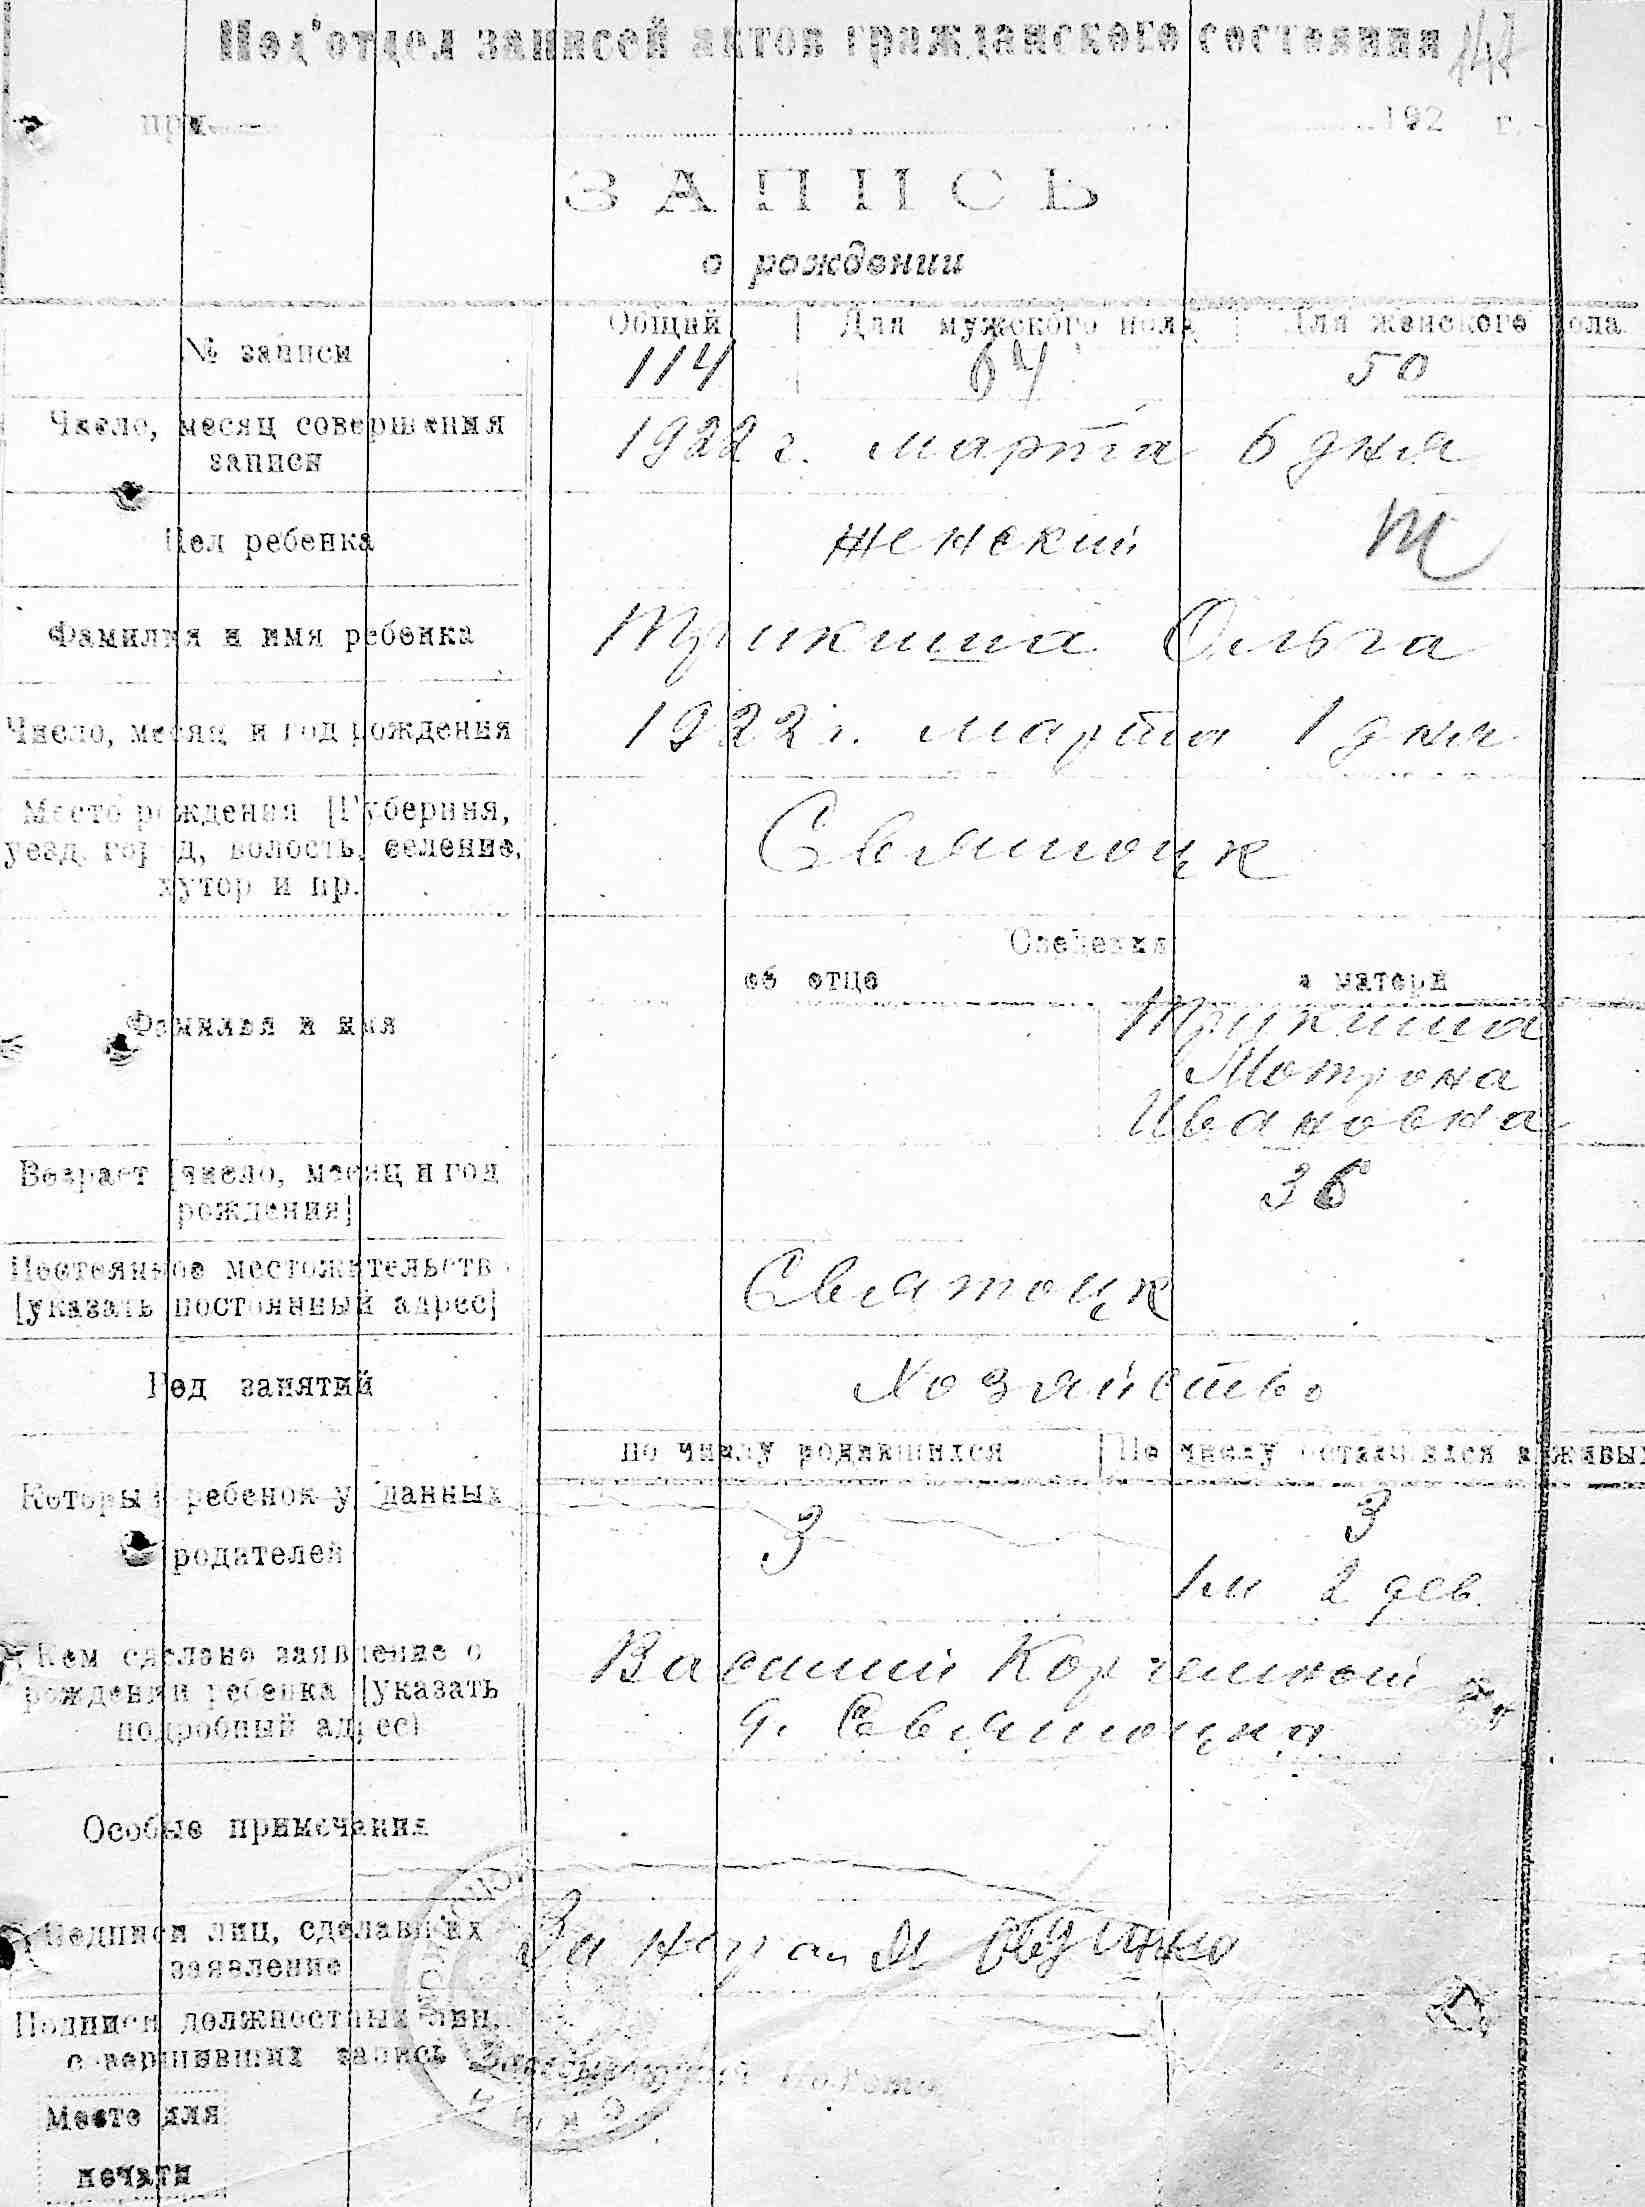 Под'отдел записей актов гражданского состояния 141
при 192 г.
ЗАПИСЬ
о рождении
Общий Для мужского пола Для женского пола
№ записи 114 64 50
Число, месяц совершения
записи
1922 г. марта 6 дня
Пол ребенка женский Т
Фамилия и имя ребенка Трикиша Ольга
Число, месяц и год рождения 1922 г. марта 1 дня
Место рождения [Губерния,
уезд, город, волость, селение,
хутор и пр.
Святоцк
Сведения
об отце о матери
Фамилия и имя
Трикиша
Мотрона
Ивановна
Возраст [число, месяц и год
рождения]
36
Постоянное местожительство
[указать постоянный адрес]
Святоцк
Род занятий Хозяйство
по числу родившихся По числу оставшихся в живых
Который ребенок у данных
родителей
3 3
1 м 2 дев.
Кем сделано заявление о
рождении ребенка [указать
подробный адрес]
Василий
Святоцка
Особые примечания
Подписи лиц, сделавших
заявление
За неграм
Подписи должностных лиц,
совершивших запись
Место для
печати